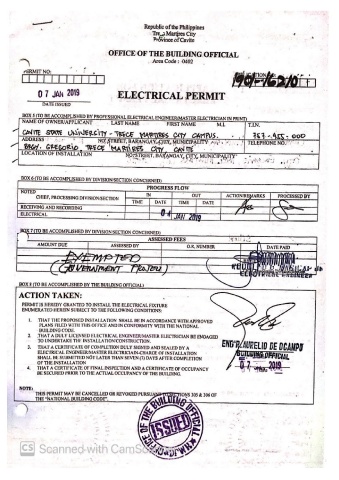 Republic of the Philippines
Trece Martires City
Province of Cavite
OFFICE OF THE BUILDING OFFICIAL
Area Code : 0402
PERMIT NO:
07 JAN 2019
DATE ISSUED
ELECTRICAL PERMIT
BOX 5 (TO BE ACCOMPLISHED BY PROFESSIONAL ELECTRICAL ENGINEER/MASTER ELECTRICIAN IN PRINT)
NAME OF OWNER/APPLICANT LAST NAME FIRST NAME M.I. T.I.N.
CAVITE STATE UNIVERSITY - TRECE MARTIRES CITY CAMPUS.
ADDRESS NO. STREET, BARANGAY, CITY, MUNICIPALITY TELEPHONE NO.
BRGY. GREGORIO TRECE MARTIRES CITY CAVITE
LOCATION OF INSTALLATION NO. STREET, BARANGAY, CITY, MUNICIPALITY
BOX 6 (TO BE ACCOMPLISHED BY DIVISION/SECTION CONCERNED)
PROGRESS FLOW
NOTED IN OUT ACTION/REMARKS PROCESSED BY
CHIEF, PROCESSING DIVISION/SECTION TIME DATE TIME DATE
RECEIVING AND RECORDING
ELECTRICAL 04 JAN 2019
BOX 7 (TO BE ACCOMPLISHED BY DIVISION/SECTION CONCERNED)
ASSESSED FEES
AMOUNT DUE ASSESSED BY O.R. NUMBER DATE PAID
EXEMPTED
(GOVERNMENT PROJECT)
ELECTRICAL ENGINEER
BOX 8 (TO BE ACCOMPLISHED BY THE BUILDING OFFICIAL)
ACTION TAKEN:
PERMIT IS HEREBY GRANTED TO INSTALL THE ELECTRICAL FIXTURE
ENUMERATED HEREIN SUBJECT TO THE FOLLOWING CONDITIONS:
1. THAT THE PROPOSED INSTALLATION SHALL BE IN ACCORDANCE WITH APPROVED
PLANS FILED WITH THIS OFFICE AND IN CONFORMITY WITH THE NATIONAL
BUILDING CODE.
2. THAT A DULY LICENSED ELECTRICAL ENGINEER/MASTER ELECTRICIAN BE ENGAGED
TO UNDERTAKE THE INSTALLATION/CONSTRUCTION.
3. THAT A CERTIFICATE OF COMPLETION DULY SIGNED AND SEALED BY A
ELECTRICAL ENGINEER/MASTER ELECTRICIAN IN-CHARGE OF INSTALLATION
SHALL BE SUBMITTED NOT LATER THAN SEVEN (7) DAYS AFTER COMPLETION
OF THE INSTALLATION.
4. THAT A CERTIFICATE OF FINAL INSPECTION AND A CERTIFICATE OF OCCUPANCY
BE SECURED PRIOR TO THE ACTUAL OCCUPANCY OF THE BUILDING.
ENGR. AURELIO DE OCAMPO
BUILDING OFFICIAL
07 2019
NOTE:
THIS PERMIT MAY BE CANCELLED OR REVOKED PURSUANT TO SECTIONS 305 & 306 OF
THE "NATIONAL BUILDING CODE".
OFFICE OF THE BUILDING OFFICIAL
ISSUED
CS Scanned with CamS